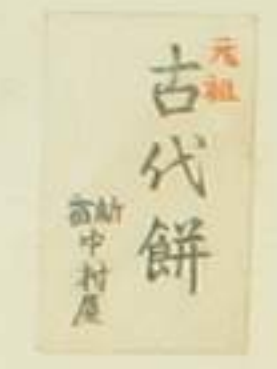 元祖
古代餅
新宿
中村屋